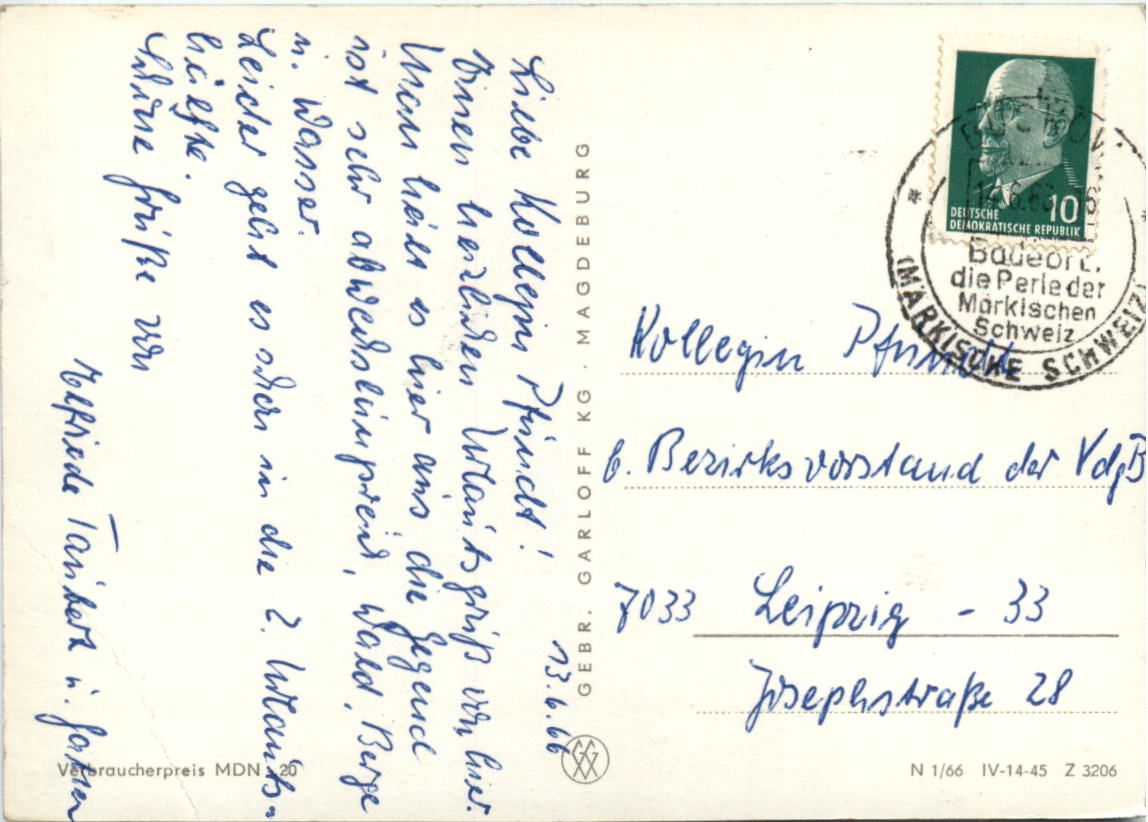 13.6.66
Liebe Kollegin Pfundt!
Einen herzlichen Urlaubsgruß von hier.
Uns heilt es hier aus die Gegend
ist sehr abwechslungsreich, Wald, Berge
u. Wasser.
Leider geht es schon in die 2. Urlaubs-
hälfte.
Schöne Grüße von
Elfriede Taubert u. Gatten
GEBR. GARLOFF KG · MAGDEBURG
Verbraucherpreis MDN -,20
10
DEUTSCHE
DEMOKRATISCHE REPUBLIK
BUCKOW
14.6.66
Badeort,
die Perle der
Märkischen
Schweiz
(MÄRKISCHE SCHWEIZ)
Kollegin Pfundt
b. Bezirksvorstand der VdgB
7033 Leipzig - 33
Josephstraße 28
N 1/66 IV-14-45 Z 3206